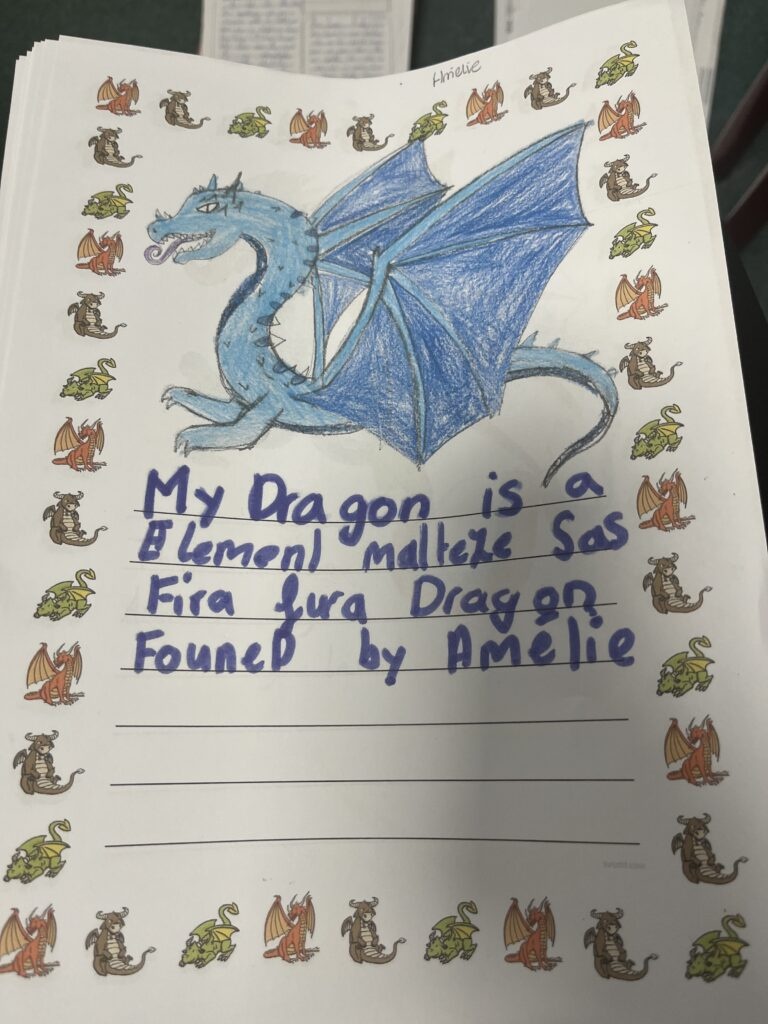 Amelie
My Dragon is a
Element malteze Sas
Fira fura Dragon
FouneD by Amélie